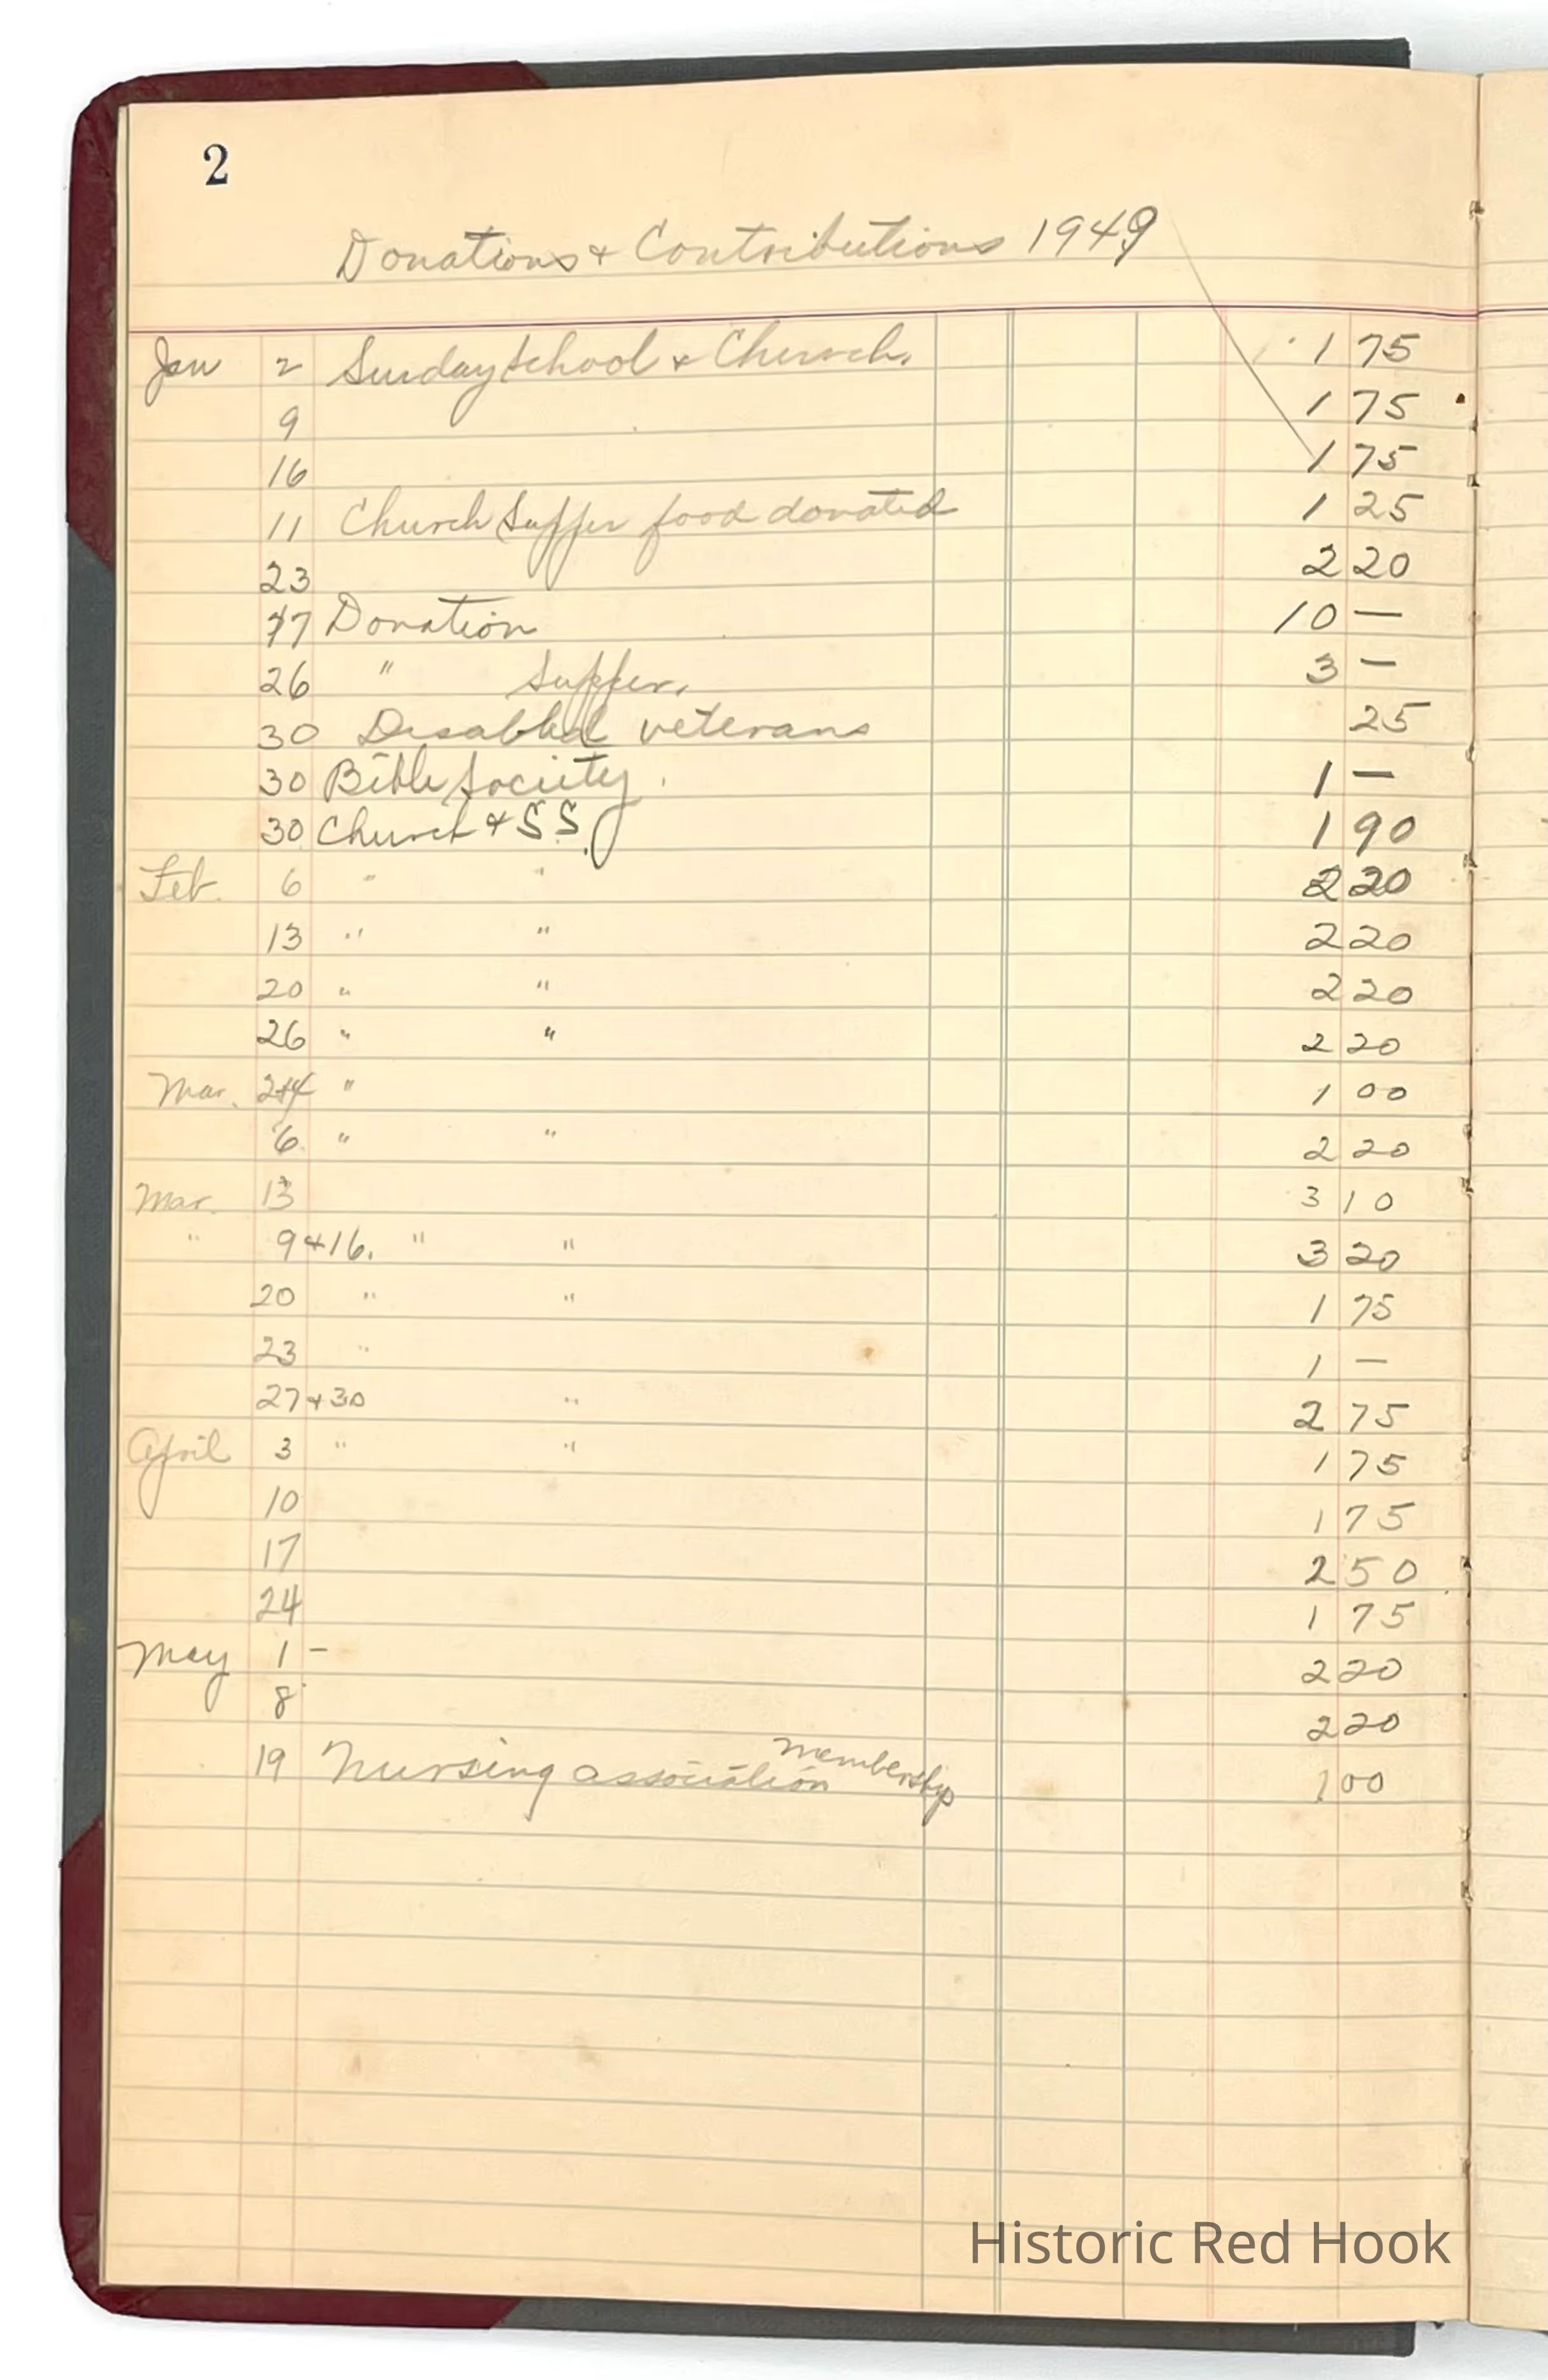 2
Donations + Contributions 1949
Jan 2 Sunday School + Church. 1 75
9 1 75
16 1 75
11 Church Supper food donated 1 25
23 2 20
17 Donation 10 —
26 " Supper. 3 —
30 Disabled veterans 25
30 Bible Society. 1 —
30 Church + S S. 1 90
Feb. 6 " " 2 20
13 " " 2 20
20 " " 2 20
26 " " 2 20
Mar. " 1 00
6 " " 2 20
Mar. 13 3 10
" 9+16. " " 3 20
20 " " 1 75
23 " 1 —
27+30 " 2 75
April 3 " " 1 75
10 1 75
17 2 50
24 1 75
May 1 - 2 20
8 2 20
19 Nursing association membership 1 00
Historic Red Hook